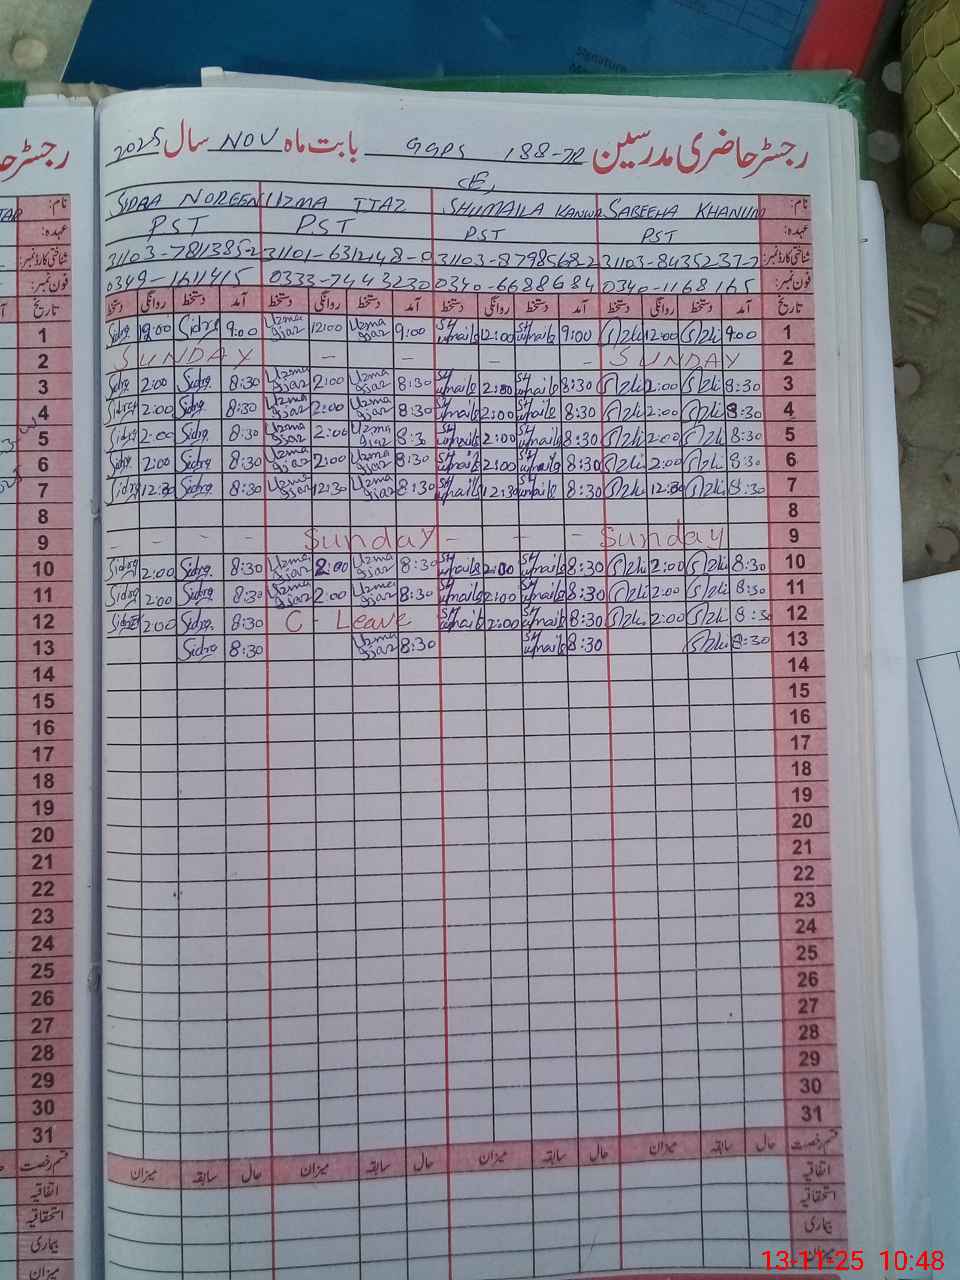 رجسٹر حاضری مدرسین GGPS 188-7R بابت ماہ NOV سال 2025
نام: SABEEHA KHANUM SHUMAILA KANWAL UZMA IJAZ SIDRA NOREEN
عہدہ: PST PST PST PST
شناختی کارڈ نمبر: 31103-8435237-2 31103-8798568-2 31101-6312148-0 31103-7813852
فون نمبر: 0340-1168165 0340-6688684 0333-7443230 0349-1611415
تاریخ آمد دستخط روانگی دستخط آمد دستخط روانگی دستخط آمد دستخط روانگی دستخط آمد دستخط روانگی دستخط
1 9:00 12:00 9:00 Shumaila 12:00 Shumaila 9:00 Uzma Ijaz 12:00 Uzma Ijaz 9:00 Sidra Sidra
2 SUNDAY - - - SUNDAY
3 8:30 2:00 8:30 Shumaila 2:00 Shumaila 8:30 Uzma Ijaz 2:00 Uzma Ijaz 8:30 Sidra 2:00 Sidra
4 8:30 2:00 8:30 Shumaila 2:00 Shumaila 8:30 Uzma Ijaz 2:00 Uzma Ijaz 8:30 Sidra 2:00 Sidra
5 8:30 2:00 8:30 Shumaila 2:00 Shumaila 8:30 Uzma Ijaz 2:00 Uzma Ijaz 8:30 Sidra 2:00 Sidra
6 8:30 2:00 8:30 Shumaila 2:00 Shumaila 8:30 Uzma Ijaz 2:00 Uzma Ijaz 8:30 Sidra 2:00 Sidra
7 8:30 12:30 8:30 Shumaila 12:30 Shumaila 8:30 Uzma Ijaz 12:30 Uzma Ijaz 8:30 Sidra 12:30 Sidra
8
9 Sunday - - - Sunday - - - -
10 8:30 2:00 8:30 Shumaila 2:00 Shumaila 8:30 Uzma Ijaz 2:00 Uzma Ijaz 8:30 Sidra 2:00 Sidra
11 8:30 2:00 8:30 Shumaila 2:00 Shumaila 8:30 Uzma Ijaz 2:00 Uzma Ijaz 8:30 Sidra 2:00 Sidra
12 8:30 2:00 8:30 Shumaila 2:00 Shumaila C - Leave 8:30 Sidra 2:00 Sidra
13 8:30 8:30 Shumaila 8:30 Uzma Ijaz 8:30 Sidra
14
15
16
17
18
19
20
21
22
23
24
25
26
27
28
29
30
31
قسم رخصت حال سابقہ میزان حال سابقہ میزان حال سابقہ میزان حال سابقہ میزان
اتفاقیہ
استحقاقیہ
بیماری
میزان
13-11-25 10:48